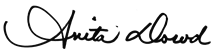 Anita Dowd